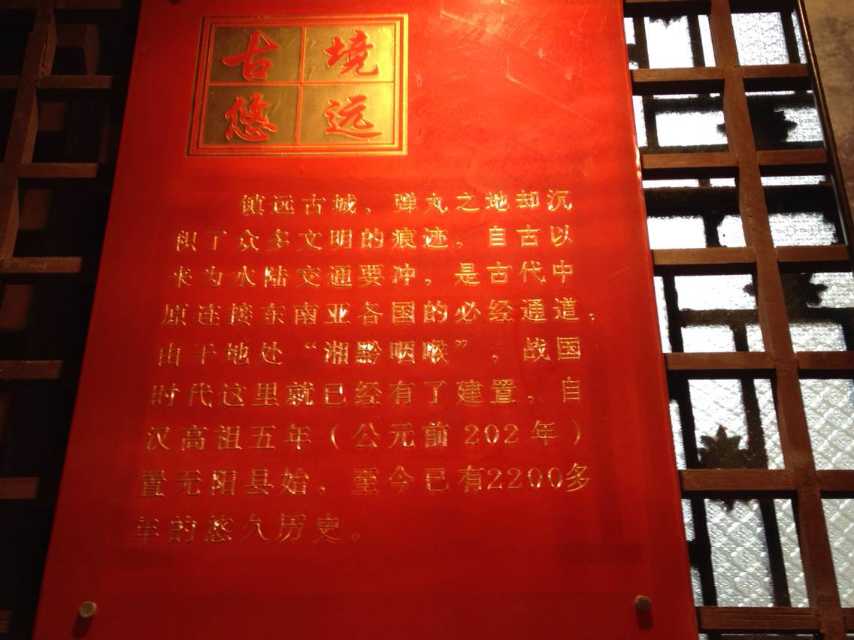 古境
悠远
镇远古城，弹丸之地却沉
积了众多文明的痕迹。自古以
来为水陆交通要冲，是古代中
原连接东南亚各国的必经通道，
由于地处“湘黔咽喉”，战国
时代这里就已经有了建置。自
汉高祖五年（公元前202年）
置无阳县始，至今已有2200多
年的悠久历史。